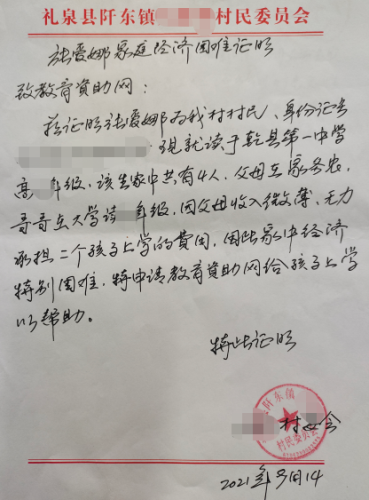 礼泉县阡东镇 村民委员会
张爱娜家庭经济困难证明
致教育資助网:
兹证明张爱娜为我村村民、身份证号
现就读于乾县第一中学
高 年级、该生家中共有4人、父母在家务农,
哥哥在大学读 年级、因父母收入微薄、无力
承担二个孩子上学的费用、因此家中经济
特别困难、特申请教育資助网给孩子上学
以帮助。
特此证明
村 会
阡东镇
村民委员会
2021年3月14